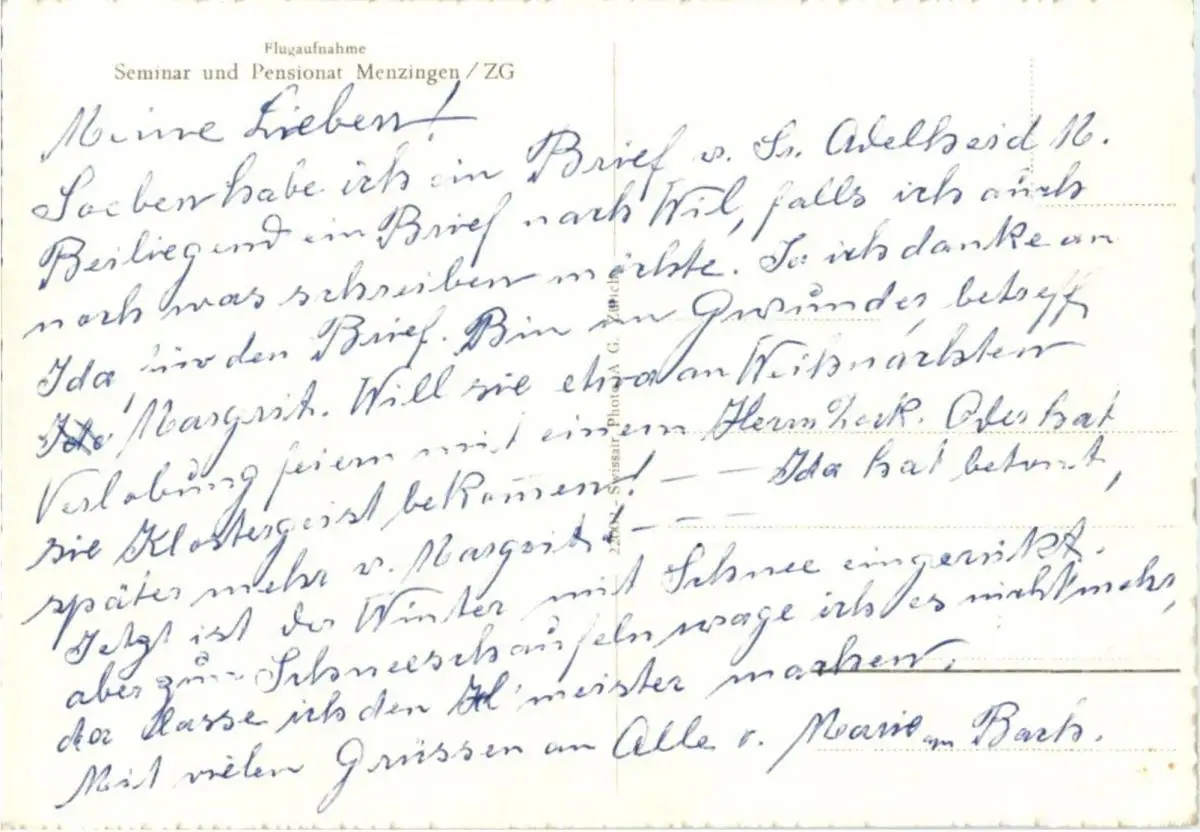 Flugaufnahme
Seminar und Pensionat Menzingen / ZG
Meine Lieben!
Soeben habe ich ein Brief v. Sr. Adelheid M.
Beiliegend ein Brief nach Wil, falls ich auch
noch was schreiben möchte. Ja ich danke an
Ida, für den Brief. Bin im Gwunder, betreff
Margrit. Will sie etwa an Weihnachten
Verlobung feiern mit einem Herrn Zock. Oder hat
sie Klostergeist bekommen! — — Ida hat betont,
später mehr v. Margrit! — — —
Jetzt ist der Winter mit Schnee eingerükt.
aber zum Schneeschaufeln wage ich es nicht mehr,
da lasse ich den H'meister machen.
Mit vielen Grüssen an Alle v. Marie am Bach.
- Swissair Photo A. G. Zürich